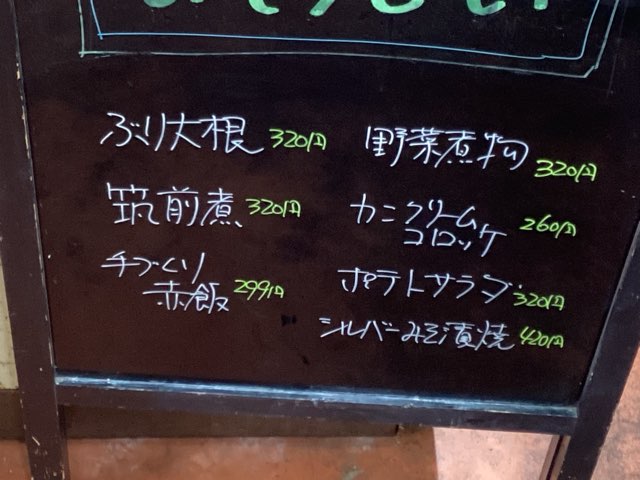 ぶり大根 320円
筑前煮 320円
手づくり
赤飯 299円
野菜煮物 320円
カニクリーム
コロッケ 260円
ポテトサラダ 320円
シルバーみそ漬焼 420円